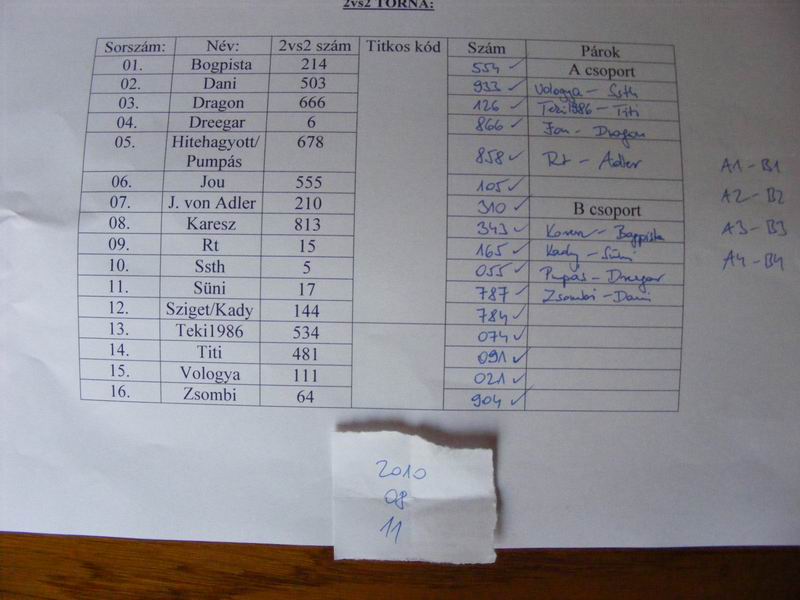 2vs2 TORNA:
Sorszám: Név: 2vs2 szám Titkos kód Szám Párok
01. Bogpista 214 554 ✓ A csoport
02. Dani 503 933 ✓ Vologya - Ssth
03. Dragon 666 126 ✓ Teki1986 - Titi
04. Dreegar 6 866 ✓ Jou - Dragon
05. Hitehagyott/ 678
Pumpás 858 ✓ Rt - Adler
06. Jou 555 105 ✓
07. J. von Adler 210 310 ✓ B csoport
08. Karesz 813 343 ✓ - Bogpista
09. Rt 15 165 ✓ Kady - Süni
10. Ssth 5 055 ✓ Pupás - Dreegar
11. Süni 17 787 ✓ Zsombi - Dani
12. Sziget/Kady 144 784 ✓
13. Teki1986 534 074 ✓
14. Titi 481 091 ✓
15. Vologya 111 021 ✓
16. Zsombi 64 904 ✓
A1 - B1
A2 - B2
A3 - B3
A4 - B4
2010
08
11